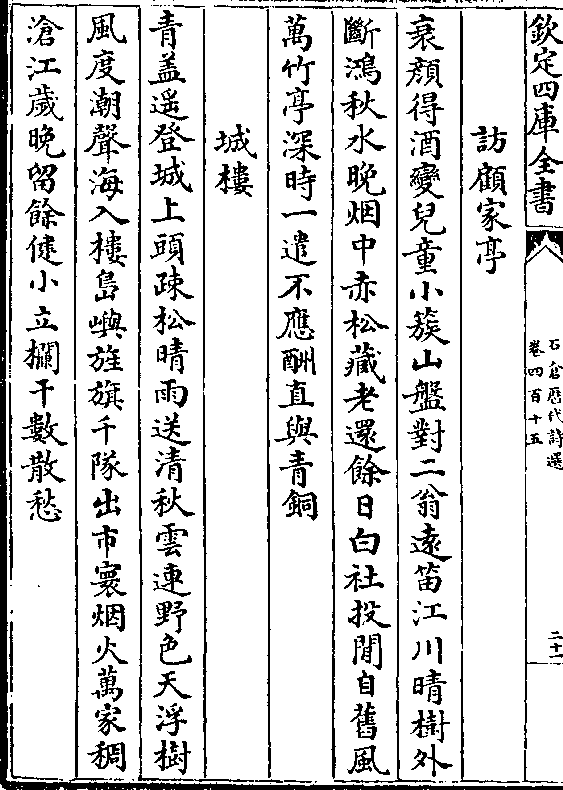 欽定四庫全書
石倉歷代詩選
卷四百十五
二十一
訪顧家亭
衰顔得酒變兒童小簇山盤對二翁遠笛江川晴樹外
斷鴻秋水晚烟中赤松藏老還餘日白社投閒自舊風
萬竹亭深時一遣不應酬直與青銅
城樓
青盖遥登城上頭疎松晴雨送清秋雲連野色天浮樹
風度潮聲海入樓島嶼旌旗千隊出市寰烟火萬家稠
滄江歲晚留餘健小立欄干數散愁